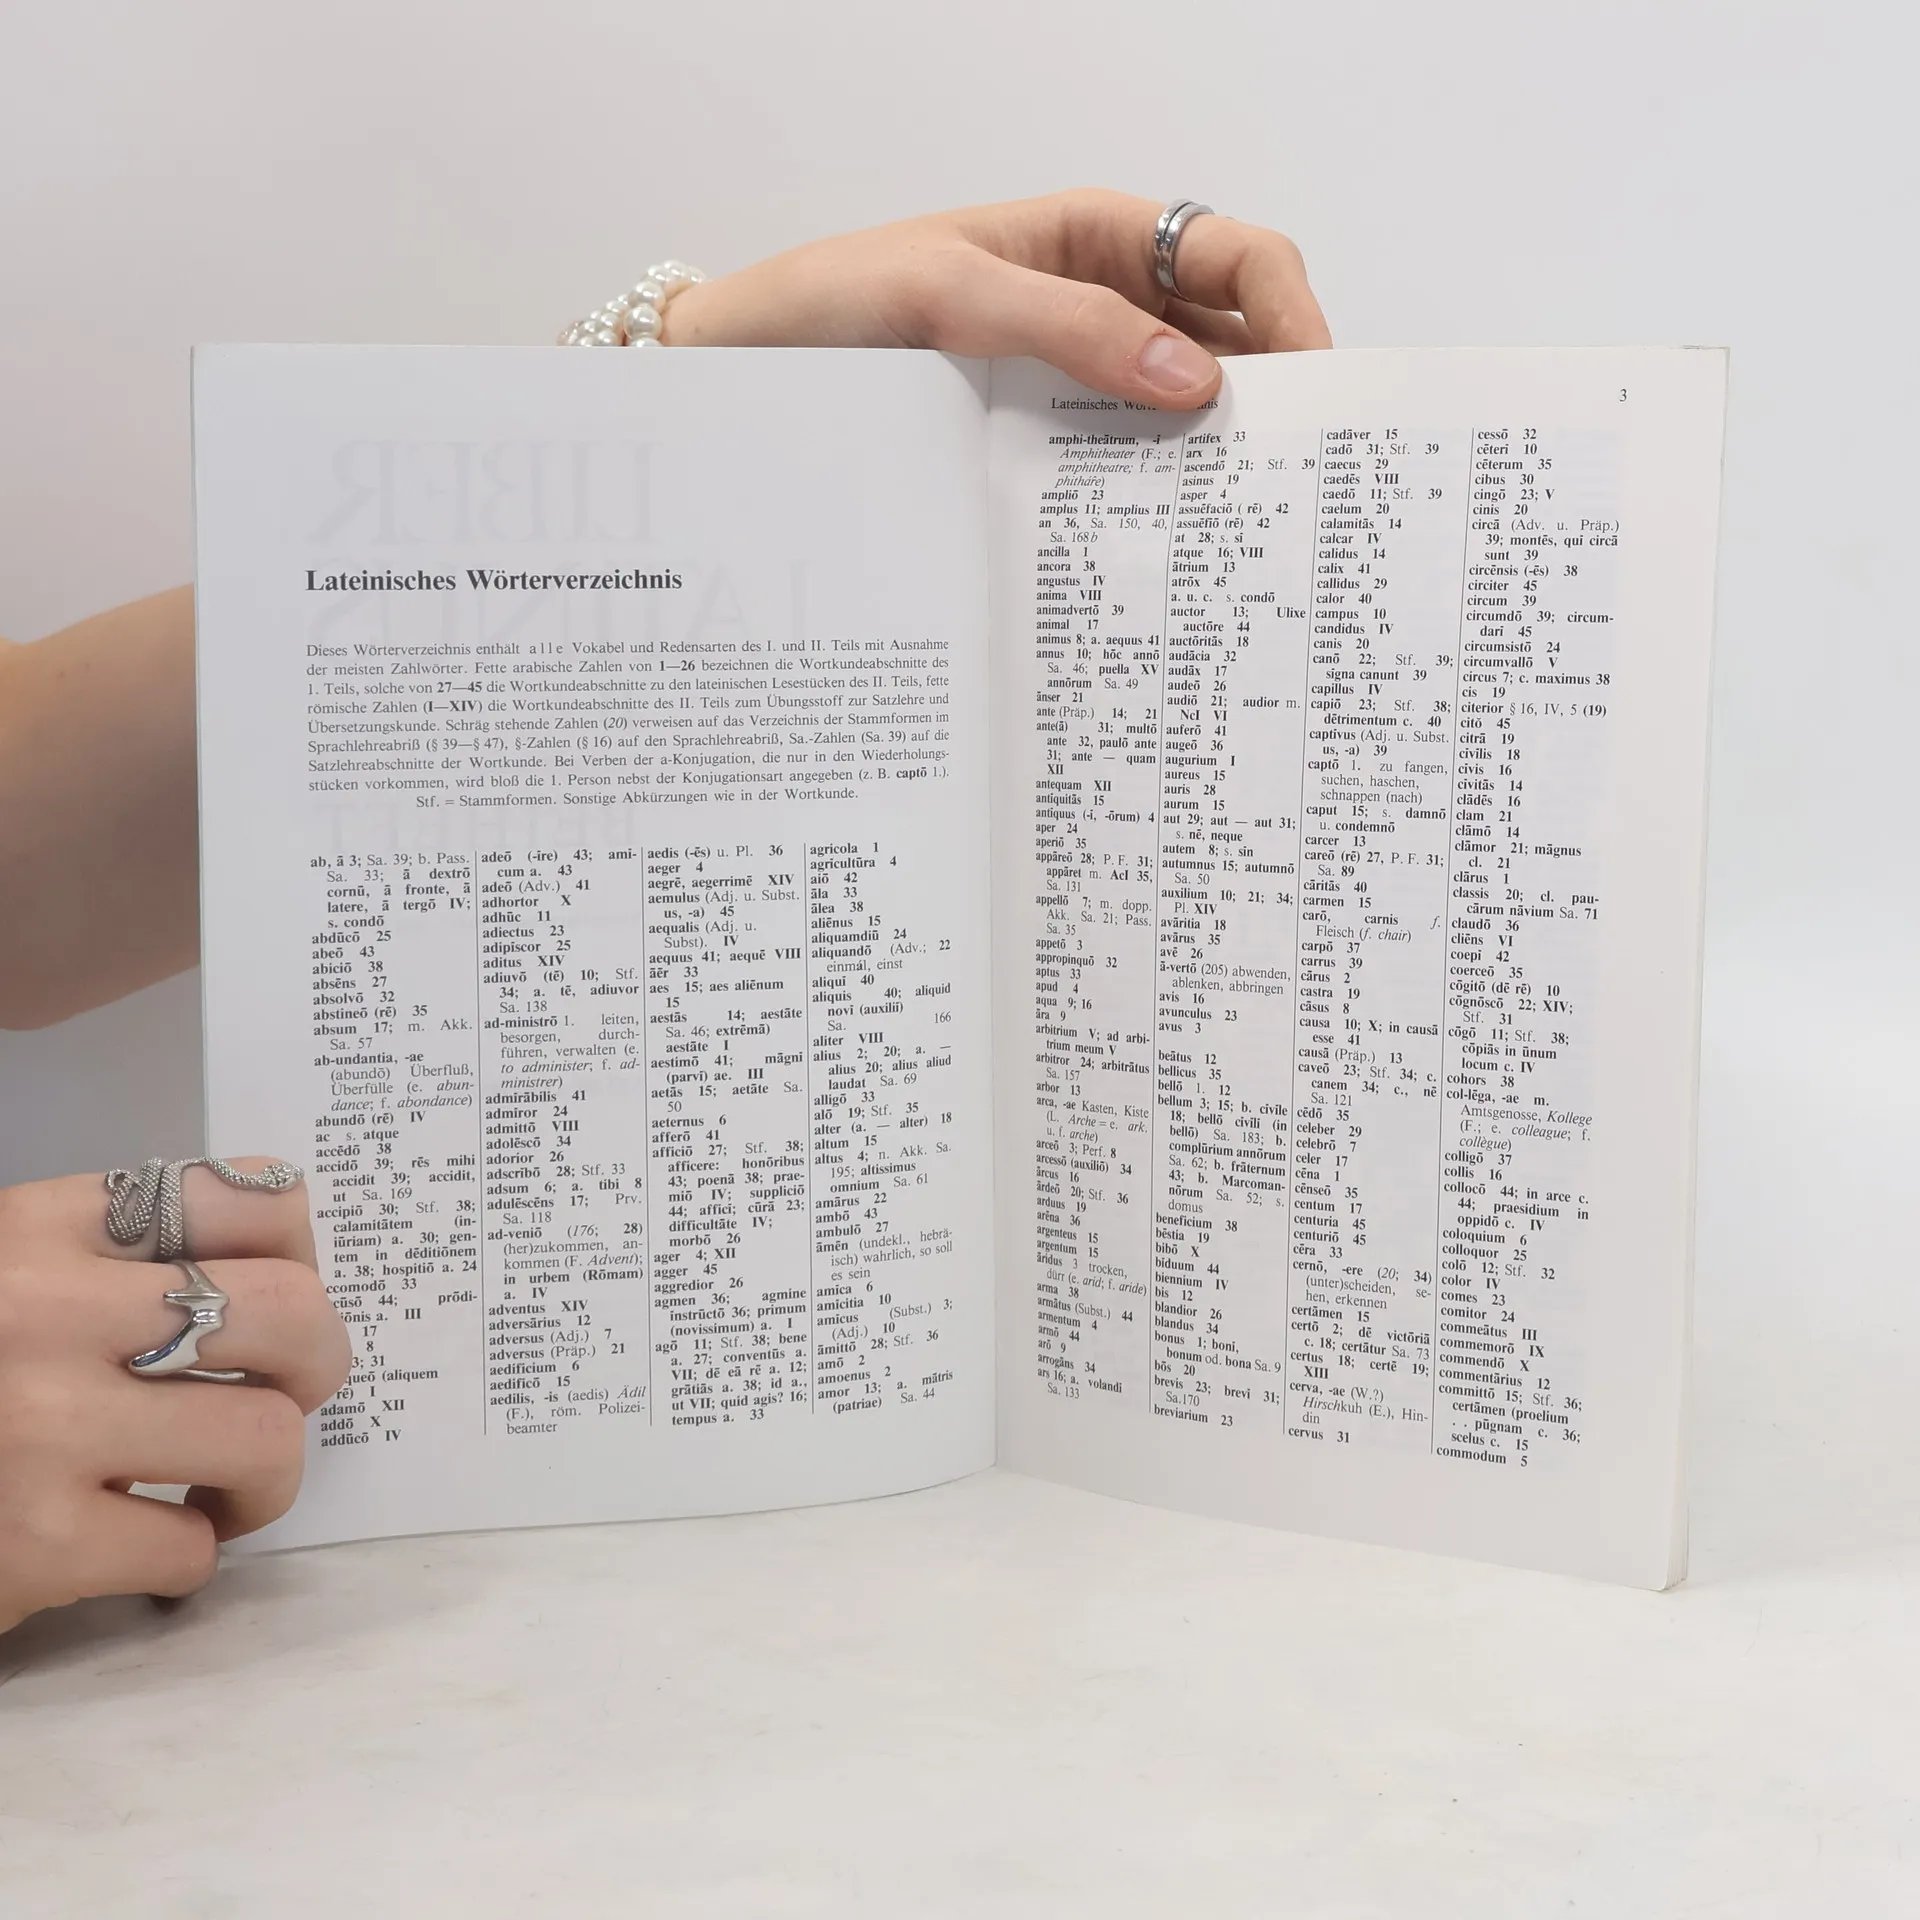 Lateinisches Wörterverzeichnis
Dieses Wörterverzeichnis enthält alle Vokabel und Redensarten des I. und II. Teils mit Ausnahme
der meisten Zahlwörter. Fette arabische Zahlen von 1—26 bezeichnen die Wortkundeabschnitte des
1. Teils, solche von 27—45 die Wortkundeabschnitte zu den lateinischen Lesestücken des II. Teils, fette
römische Zahlen (I—XIV) die Wortkundeabschnitte des II. Teils zum Übungsstoff zur Satzlehre und
Übersetzungskunde. Schräg stehende Zahlen (20) verweisen auf das Verzeichnis der Stammformen im
Sprachlehreabriß (§ 39—§ 47), §-Zahlen (§ 16) auf den Sprachlehreabriß, Sa.-Zahlen (Sa. 39) auf die
Satzlehreabschnitte der Wortkunde. Bei Verben der a-Konjugation, die nur in den Wiederholungs-
stücken vorkommen, wird bloß die 1. Person nebst der Konjugationsart angegeben (z. B. captō 1.).
Stf. = Stammformen. Sonstige Abkürzungen wie in der Wortkunde.
ab, ā 3; Sa. 39; b. Pass.
Sa. 33; ā dextrō
cornū, ā fronte, ā
latere, ā tergō IV;
s. condō
abdūcō 25
abeō 43
abiciō 38
absēns 27
absolvō 32
abstineō (rē) 35
absum 17; m. Akk.
Sa. 57
ab-undantia, -ae
(abundō) Überfluß,
Überfülle (e. abun-
dance; f. abondance)
abundō (rē) IV
ac s. atque
accēdō 38
accidō 39; rēs mihi
accidit 39; accidit,
ut Sa. 169
accipiō 30; Stf. 38;
calamitātem (in-
iūriam) a. 30; gen-
tem in dēditiōnem
a. 38; hospitiō a. 24
ccomodō 33
cūsō 44; prōdi-
iōnis a. III
17
8
3; 31
queō (aliquem
rē) I
adamō XII
addō X
addūcō IV
adeō (-īre) 43; ami-
cum a. 43
adeō (Adv.) 41
adhortor X
adhūc 11
adiectus 23
adipīscor 25
aditus XIV
adiuvō (tē) 10; Stf.
34; a. tē, adiuvor
Sa. 138
ad-ministrō 1. leiten,
besorgen, durch-
führen, verwalten (e.
to administer; f. ad-
ministrer)
admīrābilis 41
admīror 24
admittō VIII
adolēscō 34
adorior 26
adscrībō 28; Stf. 33
adsum 6; a. tibi 8
adulēscēns 17; Prv.
Sa. 118
ad-veniō (176; 28)
(her)zukommen, an-
kommen (F. Advent);
in urbem (Rōmam)
a. IV
adventus XIV
adversārius 12
adversus (Adj.) 7
adversus (Präp.) 21
aedificium 6
aedificō 15
aedīlis, -is (aedis) Ädil
(F.), röm. Polizei-
beamter
aedis (-ēs) u. Pl. 36
aeger 4
aegrē, aegerrimē XIV
aemulus (Adj. u. Subst.
us, -a) 45
aequalis (Adj. u.
Subst). IV
aequus 41; aequē VIII
āēr 33
aes 15; aes aliēnum
15
aestās 14; aestāte
Sa. 46; extrēmā)
aestāte I
aestimō 41; māgnī
(parvī) ae. III
aetās 15; aetāte Sa.
50
aeternus 6
afferō 41
afficiō 27; Stf. 38;
afficere: honōribus
43; poenā 38; prae-
miō IV; suppliciō
44; afficī; cūrā 23;
difficultāte IV;
morbō 26
ager 4; XII
agger 45
aggredior 26
agmen 36; agmine
īnstrūctō 36; prīmum
(novissimum) a. I
agō 11; Stf. 38; bene
a. 27; conventūs a.
VII; dē eā rē a. 12;
grātiās a. 38; id a.,
ut VII; quid agis? 16;
tempus a. 33
agricola 1
agricultūra 4
aiō 42
āla 33
ālea 38
aliēnus 15
aliquamdiū 24
aliquandō (Adv.; 22
einmál, einst
aliquī 40
aliquis 40; aliquid
novī (auxiliī)
Sa. 166
aliter VIII
alius 2; 20; a. —
alius 20; alius aliud
laudat Sa. 69
alligō 33
alō 19; Stf. 35
alter (a. — alter) 18
altum 15
altus 4; n. Akk. Sa.
195; altissimus
omnium Sa. 61
amārus 22
ambō 43
ambulō 27
āmēn (undekl., hebrä-
isch) wahrlich, so soll
es sein
amīca 6
amīcitia 10
amīcus (Subst.) 3;
(Adj.) 10
āmittō 28; Stf. 36
amō 2
amoenus 2
amor 13; a. mātris
(patriae) Sa. 44
Lateinisches
3
amphi-theātrum, -ī
Amphitheater (F.; e.
amphitheatre; f. am-
phithâtre)
ampliō 23
amplus 11; amplius III
an 36, Sa. 150, 40,
Sa. 168b
ancilla 1
ancora 38
angustus IV
anima VIII
animadvertō 39
animal 17
animus 8; a. aequus 41
annus 10; hōc annō
Sa. 46; puella XV
annōrum Sa. 49
ānser 21
ante (Präp.) 14; 21
ante(ā) 31; multō
ante 32, paulō ante
31; ante — quam
XII
antequam XII
antīquitās 15
antīquus (-ī, -ōrum) 4
aper 24
aperiō 35
appāreō 28; P. F. 31;
appāret m. AcI 35,
Sa. 131
appellō 7; m. dopp.
Akk. Sa. 21; Pass.
Sa. 35
appetō 3
appropinquō 32
aptus 33
apud 4
aqua 9; 16
āra 9
arbitrium V; ad arbi-
trium meum V
arbitror 24; arbitrātus
Sa. 157
arbor 13
arca, -ae Kasten, Kiste
(L. Arche = e. ark.
u. f. arche)
arceō 3; Perf. 8
arcessō (auxiliō) 34
arcus 16
ārdeō 20; Stf. 36
arduus 19
arēna 36
argenteus 15
argentum 15
āridus 3 trocken,
dürr (e. arid; f. aride)
arma 38
armātus (Subst.) 44
armentum 4
armō 44
arō 9
arrogāns 34
ars 16; a. volandī
Sa. 133
artifex 33
arx 16
ascendō 21; Stf. 39
asinus 19
asper 4
assuēfaciō ( rē) 42
assuēfīō (rē) 42
at 28; s. sī
atque 16; VIII
ātrium 13
atrōx 45
a. u. c. s. condō
auctor 13; Ulixe
auctōre 44
auctōritās 18
audācia 32
audāx 17
audeō 26
audiō 21; audior m.
NcI VI
auferō 41
augeō 36
augurium I
aureus 15
auris 28
aurum 15
aut 29; aut — aut 31;
s. nē, neque
autem 8; s. sīn
autumnus 15; autumnō
Sa. 50
auxilium 10; 21; 34;
Pl. XIV
avāritia 18
avārus 35
avē 26
ā-vertō (205) abwenden,
ablenken, abbringen
avis 16
avunculus 23
avus 3
beātus 12
bellicus 35
bellō 1. 12
bellum 3; 15; b. cīvīle
18; bellō cīvīlī (in
bellō) Sa. 183; b.
complūrium annōrum
Sa. 62; b. frāternum
43; b. Marcoman-
nōrum Sa. 52; s.
domus
beneficium 38
bēstia 19
bibō X
biduum 44
biennium IV
bis 12
blandior 26
blandus 34
bonus 1; bonī,
bonum od. bona Sa. 9
bōs 20
brevis 23; brevī 31;
Sa.170
breviārium 23
cadāver 15
cadō 31; Stf. 39
caecus 29
caedēs VIII
caedō 11; Stf. 39
caelum 20
calamitās 14
calcar IV
calidus 14
calix 41
callidus 29
calor 40
campus 10
candidus IV
canis 20
canō 22; Stf. 39;
signa canunt 39
capillus IV
capiō 23; Stf. 38;
dētrīmentum c. 40
captīvus (Adj. u. Subst.
us, -a) 39
captō 1. zu fangen,
suchen, haschen,
schnappen (nach)
caput 15; s. damnō
u. condemnō
carcer 13
careō (rē) 27, P. F. 31;
Sa. 89
cāritās 40
carmen 15
carō, carnis f.
Fleisch (f. chair)
carpō 37
carrus 39
cārus 2
castra 19
cāsus 8
causa 10; X; in causā
esse 41
causā (Präp.) 13
caveō 23; Stf. 34; c.
canem 34; c., nē
Sa. 121
cēdō 35
celeber 29
celebrō 7
celer 17
cēna 1
cēnseō 35
centum 17
centuria 45
centuriō 45
cēra 33
cernō, -ere (20; 34)
(unter)scheiden, se-
hen, erkennen
certāmen 15
certō 2; dē victōriā
c. 18; certātur Sa. 73
certus 18; certē 19;
XIII
cerva, -ae (W.?)
Hirschkuh (E.), Hin-
din
cervus 31
cessō 32
cēterī 10
cēterum 35
cibus 30
cingō 23; V
cinis 20
circā (Adv. u. Präp.)
39; montēs, quī circā
sunt 39
circēnsis (-ēs) 38
circiter 45
circum 39
circumdō 39; circum-
darī 45
circumsistō 24
circumvallō V
circus 7; c. maximus 38
cis 19
citerior § 16, IV, 5 (19)
citō 45
citrā 19
cīvīlis 18
cīvis 16
cīvitās 14
clādēs 16
clam 21
clāmō 14
clāmor 21; māgnus
cl. 21
clārus 1
classis 20; cl. pau-
cārum nāvium Sa. 71
claudō 36
cliēns VI
coepī 42
coerceō 35
cōgitō (dē rē) 10
cōgnōscō 22; XIV;
Stf. 31
cōgō 11; Stf. 38;
cōpiās in ūnum
locum c. IV
cohors 38
col-lēga, -ae m.
Amtsgenosse, Kollege
(F.; e. colleague; f.
collègue)
colligō 37
collis 16
collocō 44; in arce c.
44; praesidium in
oppidō c. IV
colloquium 6
colloquor 25
colō 12; Stf. 32
color IV
comes 23
comitor 24
commeātus III
commemorō IX
commendō X
commentārius 12
committō 15; Stf. 36;
certāmen (proelium
. . pūgnam c. 36;
scelus c. 15
commodum 5